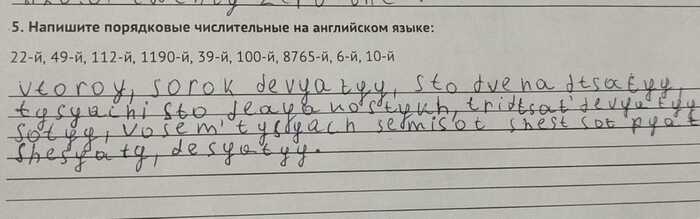 5. Напишите порядковые числительные на английском языке:
22-й, 49-й, 112-й, 1190-й, 39-й, 100-й, 8765-й, 6-й, 10-й
vtoroy, sorok devyatyy, sto dvenadtsatyy,
tysyachi sto deayanostykh, tridtsat' devyatyy
sotyy, vosem' tysyach semisot shest sot pyat
shesyaty, desyatyy.